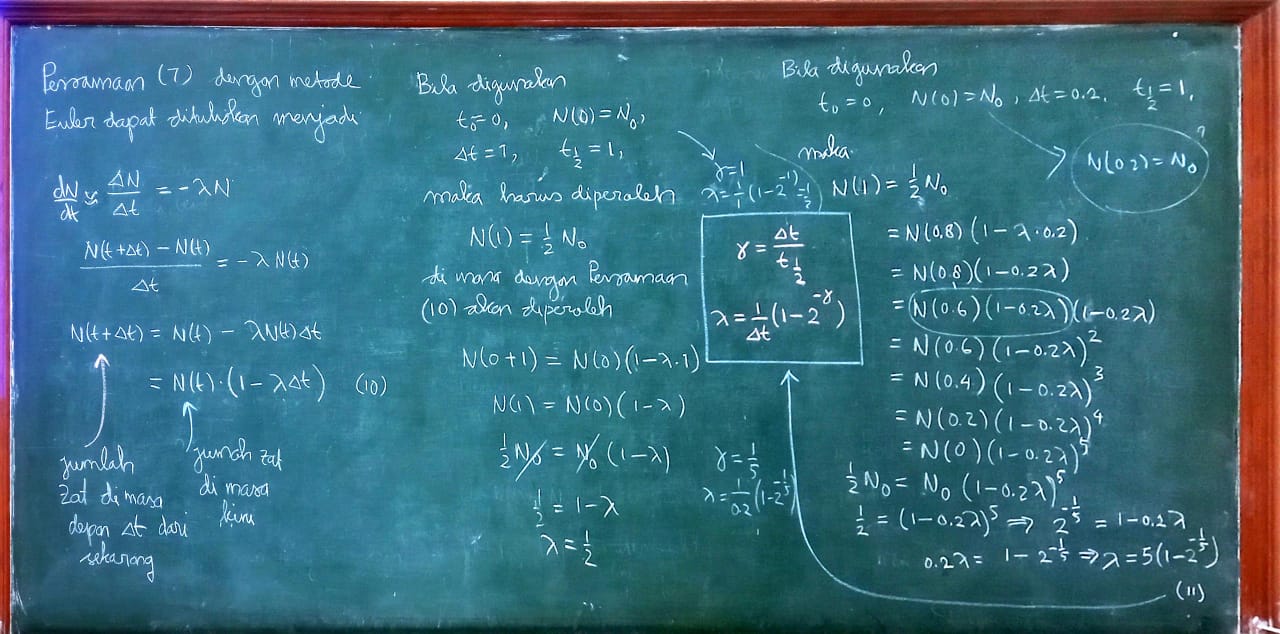 Persamaan (7) dengan metode
Euler dapat dituliskan menjadi
dN/dt ≈ ΔN/Δt = -λN
(N(t+Δt) - N(t))/Δt = -λN(t)
N(t+Δt) = N(t) - λN(t)Δt
= N(t)·(1-λΔt) (10)
jumlah
zat di masa
depan Δt dari
sekarang
jumlah zat
di masa
kini
Bila digunakan
t₀=0, N(0)=N₀,
Δt=1, t½=1,
maka harus diperoleh
N(1) = ½ N₀
di mana dengan Persamaan
(10) akan diperoleh
N(0+1) = N(0)(1-λ·1)
N(1) = N(0)(1-λ)
½N₀ = N₀(1-λ)
½ = 1-λ
λ = ½
γ=1
λ=1/1(1-2⁻¹)=½
γ = Δt/t½
λ = 1/Δt(1-2^-γ)
γ=1/5
λ=1/0.2(1-2^-1/5)
Bila digunakan
t₀=0, N(0)=N₀, Δt=0.2, t½=1,
N(0.2)=N₀?
maka
N(1) = ½N₀
= N(0.8)(1-λ·0.2)
= N(0.8)(1-0.2λ)
= N(0.6)(1-0.2λ)(1-0.2λ)
= N(0.6)(1-0.2λ)²
= N(0.4)(1-0.2λ)³
= N(0.2)(1-0.2λ)⁴
= N(0)(1-0.2λ)⁵
½N₀ = N₀(1-0.2λ)⁵
½ = (1-0.2λ)⁵ ⇒ 2^-1/5 = 1-0.2λ
0.2λ = 1-2^-1/5 ⇒ λ=5(1-2^-1/5)
(11)